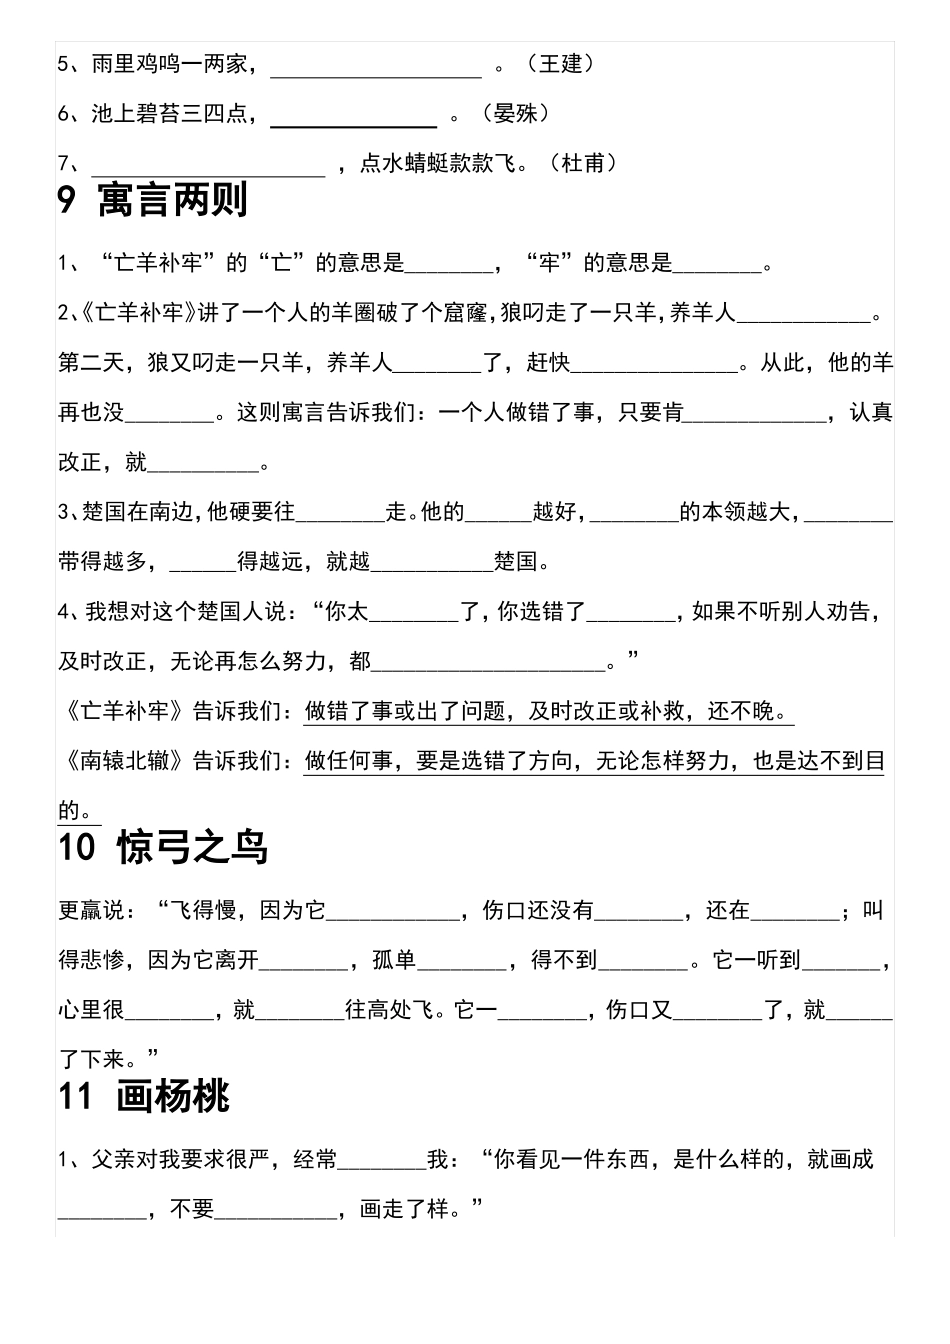 5、雨里鸡鸣一两家，___________________ 。（王建）
6、池上碧苔三四点，_______________ 。（晏殊）
7、_____________________ ，点水蜻蜓款款飞。（杜甫）
9 寓言两则
1、“亡羊补牢”的“亡”的意思是________，“牢”的意思是________。
2、《亡羊补牢》讲了一个人的羊圈破了个窟窿，狼叼走了一只羊，养羊人____________。
第二天，狼又叼走一只羊，养羊人________了，赶快_______________。从此，他的羊
再也没________。这则寓言告诉我们：一个人做错了事，只要肯_____________，认真
改正，就__________。
3、楚国在南边，他硬要往________走。他的______越好，________的本领越大，________
带得越多，______得越远，就越___________楚国。
4、我想对这个楚国人说：“你太________了，你选错了________，如果不听别人劝告，
及时改正，无论再怎么努力，都_____________________。”
《亡羊补牢》告诉我们：做错了事或出了问题，及时改正或补救，还不晚。
《南辕北辙》告诉我们：做任何事，要是选错了方向，无论怎样努力，也是达不到目
的。
10 惊弓之鸟
更羸说：“飞得慢，因为它____________，伤口还没有________，还在________；叫
得悲惨，因为它离开________，孤单________，得不到________。它一听到_______，
心里很________，就________往高处飞。它一________，伤口又________了，就______
了下来。”
11 画杨桃
1、父亲对我要求很严，经常________我：“你看见一件东西，是什么样的，就画成
________，不要___________，画走了样。”